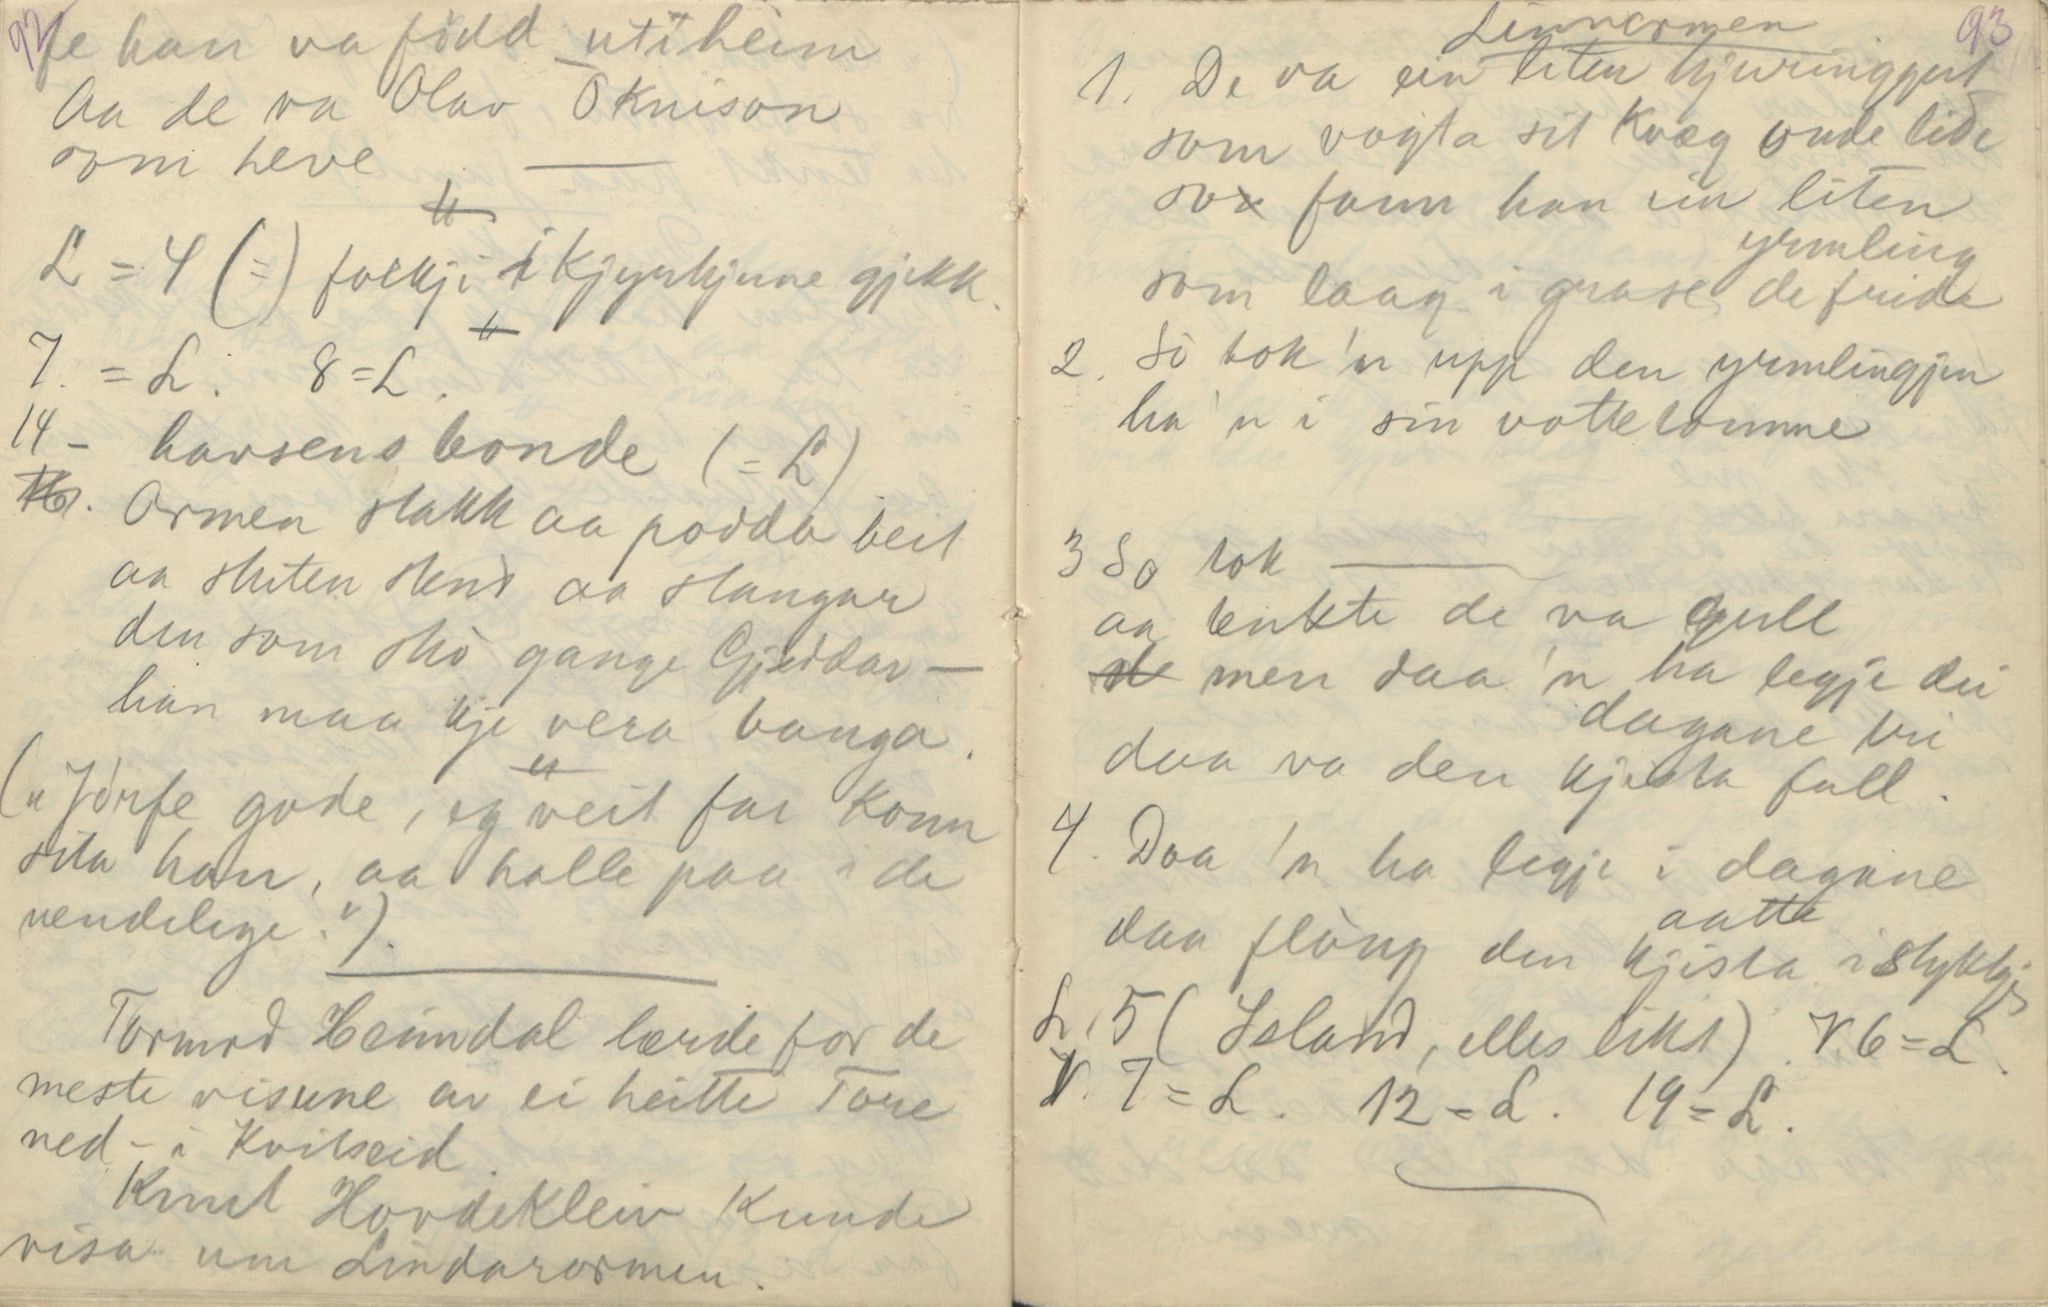 92
fe han va fødd uti heim
Aa de va Olav Øknison
som heve ———
L = 4 (=) folkji i kjyrkjune gjekk.
7. = L. 8 = L.
14 – havsens bonde (= L)
16. Ormen stakk aa podda beit
aa stuten stend aa stangar
den som sko gange Gjeddar —
han maa kje vera banga.
("Jorfe gode, eg veit far konn
sita han, aa halle paa i de
uendelege.").
Tormod Heimdal lærde for de
meste visune av ei heitte Tore
ned – i Kvitseid.
Knut Hovdekleiv kunde
visa um Lindarormen.
93
Linnormen
1. De va ein liten hjuringgut
som vogta sit kvæg onde lide
so fann han ein liten
yrmling
som laag i grase de fride
2. So tok 'n upp den yrmlingjen
ha 'n i sin vottelomme
3 So tok ———
aa tenkte de va gull
men daa 'n ha legje dei
dagane tri
daa va den kjista full.
4. Daa 'n ha legje i dagane
aatte
daa fløug den kjista i stykkje
L. 5 (Island, elles likt). V. 6 = L.
V. 7 = L. 12 = L. 19 = L.